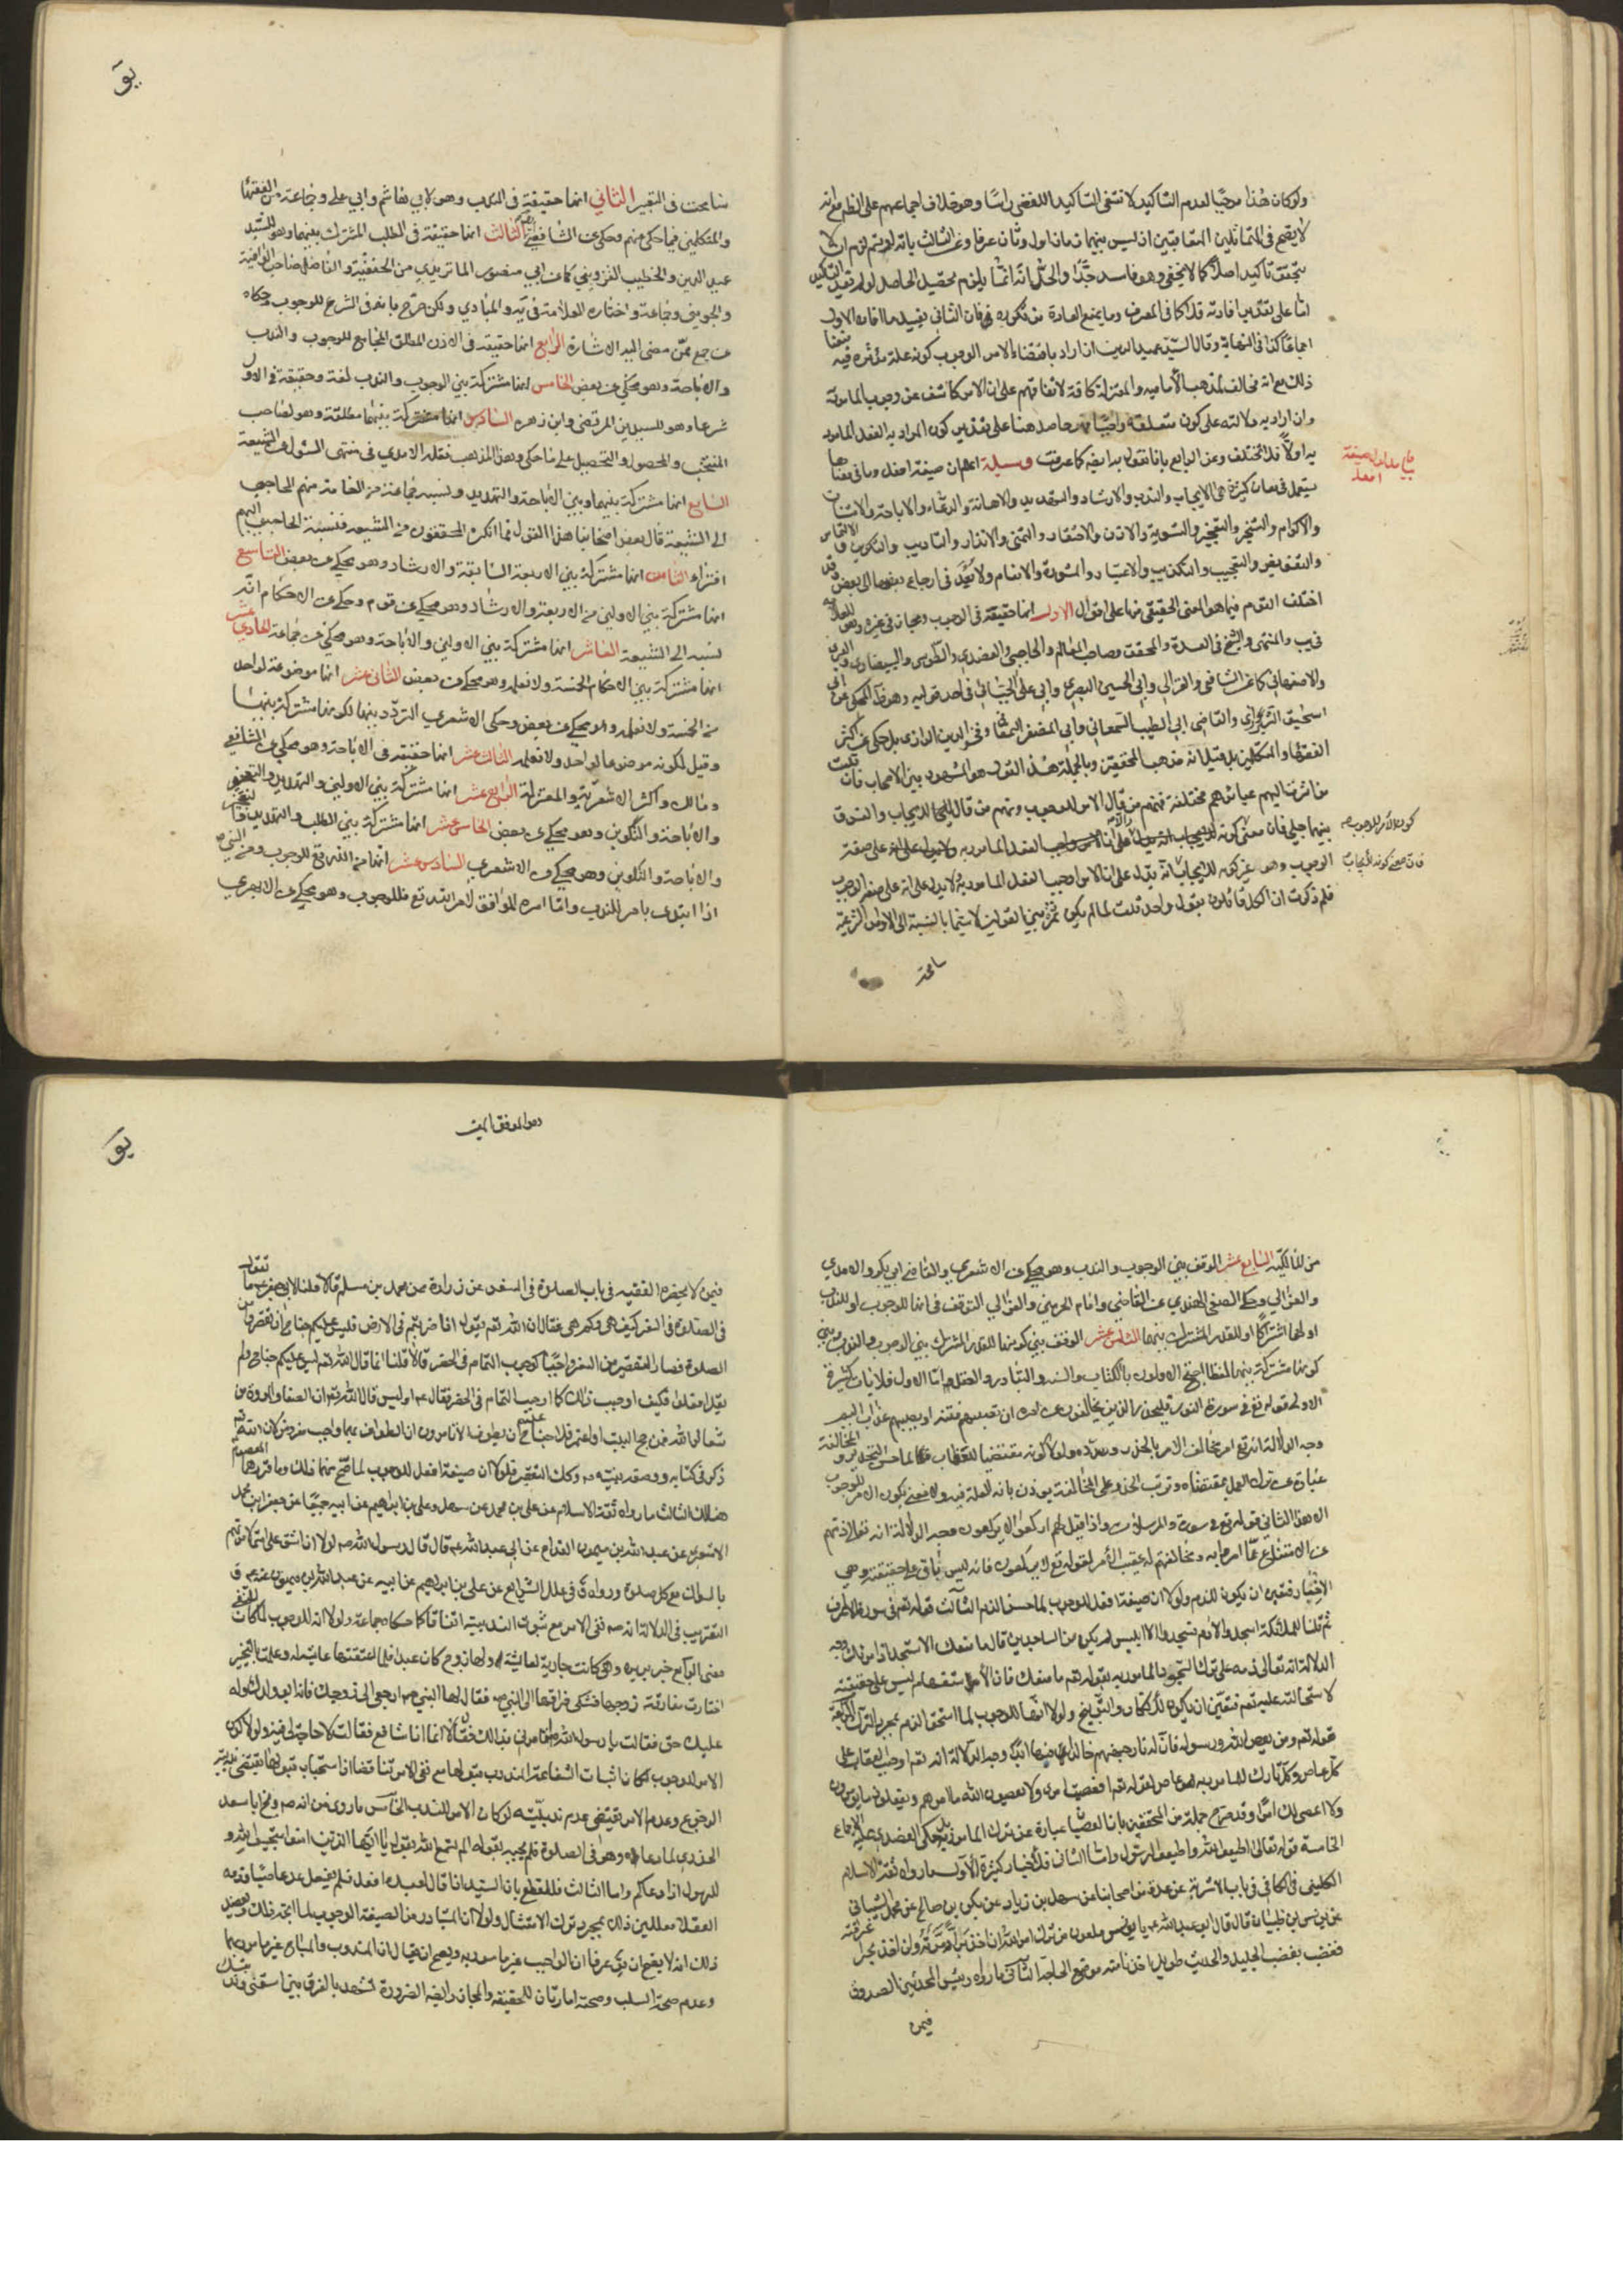 ولو كان هذا موجبًا لعدم التاكيد لانتفى التاكيد اللفظي راسًا وهو خلاف اجماعهم على انه
لا يصح في المتماثلين المتعاقبين اذ ليس بينهما اول وثان عرفا وعن الثالث بانه لو لزم
تحقق تاكيد اصلا كما لا يخفى وهو فاسد جدًا والحل انه انما يلزم تحصيل الحاصل لو لم يفد التاكيد
اما على تقدير افادته فلا كما في المعرف وما يمنع العادة من تكرره فان الثاني يفيد ما افاد الاول
اجماعًا كذا في النهاية وقال السيد عميد الدين ان اراد باقتضاء الامر الوجوب كونه علة مؤثرة فيه
ذلك مع انه مخالف لمذهب الامامية والمعتزلة كافة لاتفاقهم على ان الامر كاشف عن وجوب المامور به
وان اراد به دلالته على كون متعلقه واجبًا حاصل هنا على تقدير كون المراد به الفعل المامور
به اولًا فلا تختلف وعن الرابع بانا نقول به ايضا كما عرفت وسيلة اعلم ان صيغة افعل وما في معناها
يستعمل في معان كثيرة هي الايجاب والندب والارشاد والتهديد والاهانة والدعاء والاباحة والامتنان
والاكرام والتسخير والتعجيز والتسوية والاذن والاحتقار والتمني والانذار والتاديب والتكوين والالتماس
والتفويض والتعجيب والتكذيب والاعتبار والمشورة والانعام ولا بُعد في ارجاع بعضها الى بعض وقد
اختلف القوم فيما هو المعنى الحقيقي منها على اقوال الاول انها حقيقة في الوجوب ومجاز في غيره وهو للعلامة
في يب والمنتهى والشيخ في العدة والمحقق وصاحب المعالم والحاجبي والعضدي والطوسي والبيضاوي والعبري
والاصفهاني كما عن الشافعي والغزالي وابي الحسين البصري وابي علي الجبائي في احد قوليه وهو المحكي عن ابي
اسحق الشيرازي والقاضي ابي الطيب السمعاني وابي المظفر وفخر الدين الرازي بل حكى عن اكثر
الفقهاء والمتكلمين بل قيل انه مذهب المحققين وبالجملة هذا القول هو المشهور بين الاصحاب فان قلت
من اشرنا اليهم عباراتهم مختلفة فمنهم من قال الامر للوجوب ومنهم من قال للايجاب والفرق
بينهما جلي فان معنى كونه للايجاب انه يدل على ان الامر اوجب الفعل المامور به ولا يدل على انه على صفة
الوجوب وهو غير كونه للايجاب لانه يدل على ان الامر اوجب الفعل المامور به ولا يدل على انه على صفة الوجوب
فلم ذكرت ان الكل قائلون بقول واحد قلت لما لم يكن ثمرة بين القولين لا سيما بالنسبة الى الاوامر الشرعية
سامحنا
في بيان مدلول صيغة
افعل
كون الامر للوجوب
فان معنى كونه للايجاب
يو
سامحت في التعبير الثاني انها حقيقة في الندب وهو لابي هاشم وابي علي وجماعة من الفقهاء
والمتكلمين فيما حكي عنهم وحكي عن الشافعي الثالث انها حقيقة في الطلب المشترك بينهما وهو للسيد
عميد الدين والخطيب القزويني كما عن ابي منصور الماتريدي من الحنفية والفاضل صاحب الوافية
والجويني وجماعة واختاره العلامة في يه والمبادي ولكن صرح بانه في الشرع للوجوب وحكاه
عن جمع ممن مضى اليه الاشارة الرابع انها حقيقة في الاذن المطلق الجامع للوجوب والندب
والاباحة وهو محكي عن بعض الخامس انها مشتركة بين الوجوب والندب لغة وحقيقة في الاول
شرعا وهو للسيدين المرتضى وابن زهره السادس انها مشتركة بينهما مطلقة وهو لصاحب
المنتخب والمحصول والتحصيل على ما حكي وهذا المذهب نقله الامدي في منتهى السئول عن الشيعة
السابع انها مشتركة بينهما وبين الاباحة والتهديد ونسبه جماعة من العامة منهم الحاجبي
الى الشيعة قال بعض اصحابنا هذا القول مما انكره المحققون من الشيعة فنسبة الحاجبي اليهم
افتراء الثامن انها مشتركة بين الاربعة السابقة والارشاد وهو محكي عن بعض التاسع
انها مشتركة بين الاولين من الاربعة والارشاد وهو محكي عن قوم وحكي عن الاحكام انه
نسبه الى الشيعة العاشر انها مشتركة بين الاولين والاباحة وهو محكي عن جماعة الحادي عشر
انها مشتركة بين الاحكام الخمسة ولا نعلمه وهو محكي عن بعض الثاني عشر انها موضوعة لواحد
من الخمسة ولا نعلمه وهو محكي عن بعض وحكى الاشعري التردد بينهما لكونها مشتركة بينهما
وقيل لكونه موضوعا لواحد ولا نعلمه الثالث عشر انها حقيقة في الاباحة وهو محكي عن الشافعي
ومالك واكثر الاشعرية والمعتزلة الرابع عشر انها مشتركة بين الاولين والتهديد والتعجيز
والاباحة والتكوين وهو محكي عن بعض الخامس عشر انها مشتركة بين الطلب والتهديد والتعجيز
والاباحة والتكوين وهو محكي عن الاشعري السادس عشر انها من الله تع للوجوب ومن النبي ص
اذا ابتدى بامر للندب واما امره الموافق لامر الله تع فللوجوب وهو محكي عن الابهري
من المالكية السابع عشر الوقف بين الوجوب والندب وهو محكي عن الاشعري والقاضي ابي بكر والامدي
والغزالي وحكى الصفي الهندي عن القاضي وامام الحرمين والغزالي التوقف في انها للوجوب او للندب
او لهما اشتراكًا او للقدر المشترك بينهما الثامن عشر الوقف بين كونها للقدر المشترك بين الوجوب والندب وبين
كونها مشتركة بينهما لفظا احتج الاولون بالكتاب والسنة والتبادر والعقل اما الاول فلايات كثيرة
الاولى قوله تع في سورة النور فليحذر الذين يخالفون عن امره ان تصيبهم فتنة او يصيبهم عذاب اليم
وجه الدلالة انه تع امر مخالف الامر بالحذر وهدده ولولا كونه مقتضيا للعقاب لما حسن التحذير والمخالفة
عبارة عن ترك العمل بمقتضاه وترتب الحذر على المخالفة يوذن بانه للعلة فيه ولا معنى لكون الامر للوجوب
الا هذا الثاني قوله تع في سورة والمرسلات واذا قيل لهم اركعوا لا يركعون وجه الدلالة انه تعالى ذمهم
عن الامتناع عما امروا به ومخالفتهم له عقيب الامر لقوله تع لا يركعون فانه ليس باقي على حقيقته وهي
الاخبار فتعين ان يكون للذم ولولا ان صيغة افعل للوجوب لما حسن الذم الثالث قوله تعالى في سورة الاعراف
ثم قلنا للملئكة اسجدوا لآدم فسجدوا الا ابليس لم يكن من الساجدين قال ما منعك الا تسجد اذ امرتك وجه
الدلالة انه تعالى ذمه على ترك السجود المامور به بقوله تع ما منعك فان الاستفهام ليس على حقيقته
لاستحالته عليه تع فتعين ان يكون للانكار والتوبيخ ولولا انها للوجوب لما استحق الذم بمجرد الترك الرابعة
قوله تعالى ومن يعص الله ورسوله فان له نار جهنم خالدين فيها ابدًا وجه الدلالة انه تع اوجب العقاب على
كل عاص وكل تارك للمامور به عاص لقوله تع افعصيت امري ولا يعصون الله ما امرهم ويفعلون ما يؤمرون
ولا اعصي لك امرًا وقد صرح جملة من المحققين بان العصيان عبارة عن ترك المامور به بل حكى العضدي عليه الاجماع
الخامسة قوله تعالى اطيعوا الله واطيعوا الرسول واما الثاني فلاخبار كثيرة الاول ما رواه ثقة الاسلام
الكليني في الكافي في باب الاشربة عن عدة من اصحابنا عن سهل بن زياد عن بكر بن صالح عن محمد الشيباني
عن يونس بن ظبيان قال قال ابو عبد الله ع يا يونس ملعون من ترك امر الله ان اخذ برًا دمرته وان اخذ بحرا غرقته
فغضب بغضب الجليل والحديث طويل اخذنا منه موضع الحاجة الثاني ما رواه رئيس المحدثين الصدوق
فيمن
وهو الموفق المعين
يو
فيمن لا يحضره الفقيه في باب الصلوة في السفر عن زرارة عن محمد بن مسلم قالا قلنا لابي جعفر ع ما تقول
في الصلوة في السفر كيف هي وكم هي فقال ان الله تع يقول اذا ضربتم في الارض فليس عليكم جناح ان تقصروا من
الصلوة فصار التقصير في السفر واجبًا كوجوب التمام في الحضر قالا قلنا انما قال الله تع ليس عليكم جناح ولم
يقل افعلوا فكيف اوجب ذلك كما اوجب التمام في الحضر فقال ع اوليس قال الله تع ان الصفا والمروة من
شعائر الله فمن حج البيت او اعتمر فلا جناح عليه ان يطوف الا ترون ان الطواف بهما واجب مفروض لان الله تع
ذكره في كتابه ووضعه نبيه ص وكك التقصير فلولا ان صيغة افعل للوجوب لما صح منهما ذلك وما قررهما المعصوم
هنالك الثالث ما رواه ثقة الاسلام عن علي بن محمد عن سهل وعلي بن ابراهيم عن ابيه جميعًا عن جعفر بن محمد
الاشعري عن عبد الله بن ميمون القداح عن ابي عبد الله ع قال قال رسول الله ص لولا ان اشق على امتي لامرتهم
بالسواك مع كل صلوة ورواه في علل الشرايع عن علي بن ابراهيم عن ابيه عن عبد الله بن ميمون عنه ع و
التقريب في الدلالة انه ص نفى الامر مع ثبوت الندبية اتفاقا كما حكاه جماعة ولولا انه للوجوب لما كان للنفي
معنى الرابع خبر بريرة وهي كانت جارية لعايشة ولها زوج كان عبدا فلما اعتقتها عايشة وعلمت بالتخيير
اختارت مفارقة زوجها فشكى فراقها الى النبي ص فقال لها النبي ص ارجعي الى زوجك فانه ابو ولدك وله
عليك حق فقالت يا رسول الله اتامرني بذلك فقال لا انما انا شافع فقالت لا حاجة لي فيه ولولا كون
الامر للوجوب لكان اثبات الشفاعة المندوب قبولها مع نفي الامر تناقضا اذ استحباب قبولها يقتضي
الوقوع وعدم الامر يقتضي عدم ندبيته لو كان الامر للندب الخامس ما روي من انه ص وبخ ابا سعيد
الخدري لما دعاه وهو في الصلوة فلم يجبه بقوله الم تسمع الله يقول يا ايها الذين امنوا استجيبوا لله و
للرسول اذا دعاكم واما الثالث فللقطع بان السيد اذا قال لعبده افعل فلم يفعل عد عاصيًا وذمه
العقلاء معللين ذلك بمجرد ترك الامتثال ولولا ان المتبادر من الصيغة الوجوب لما اتجه ذلك ويعضد
ذلك انه لا يصح ان يق عرفا ان الواجب غير مامور به ويصح ان يقال ان المندوب والمباح غير مامور بهما
وعدم صحة السلب وصحته امارتان للحقيقة والمجاز وايضا الضرورة تشهد بالفرق بين اسقني وند